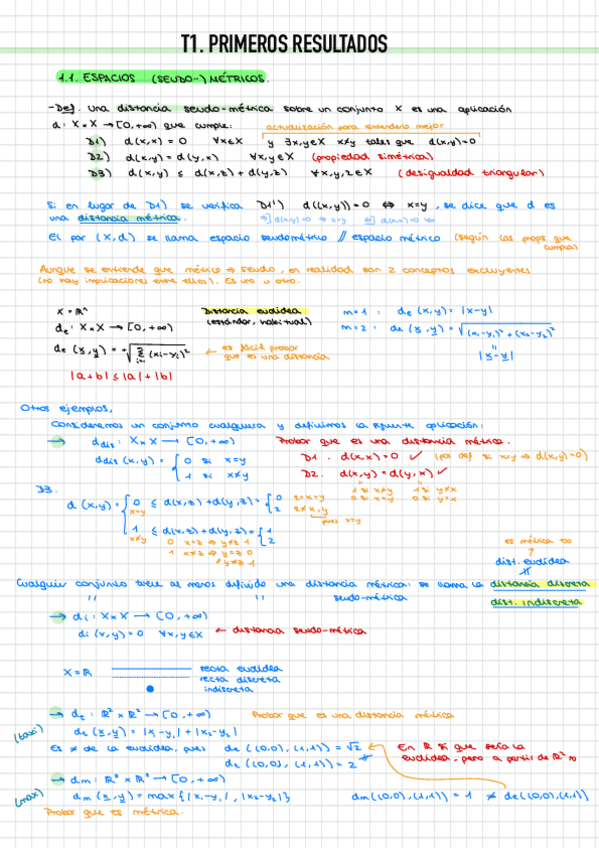 T1. PRIMEROS RESULTADOS
1.1. ESPACIOS (SEUDO-) MÉTRICOS.
-Def. una distancia seudo-métrica sobre un conjunto X es una aplicación
d: X×X → [0,+∞) que cumple: actualización para entenderlo mejor
D1) d(x,x) = 0 ∀x∈X y ∃x,y∈X x≠y tales que d(x,y)=0
D2) d(x,y) = d(y,x) ∀x,y∈X (propiedad simétrica)
D3) d(x,y) ≤ d(x,z) + d(y,z) ∀x,y,z∈X (desigualdad triangular)
Si en lugar de D1) se verifica D1') d((x,y)) = 0 ⇔ x=y, se dice que d es
una distancia métrica.
El par (X,d) se llama espacio seudométrico // espacio métrico (según las props. que
cumpla)
Aunque se entiende que métrico → seudo, en realidad son 2 conceptos excluyentes
(no hay implicaciones entre ellos). Es uno u otro.
X = ℝⁿ Distancia euclídea m=1: de (x,y) = |x-y|
de: X×X → [0,+∞) (estándar, habitual) m=2: de (x,y) = √(x₁-y₁)² + (x₂-y₂)²
de (x,y) = +√Σ (xi-yi)² ← es fácil probar
que es una distancia
|x-y|
|a+b| ≤ |a| + |b|
Otros ejemplos,
Consideremos un conjunto cualquiera y definimos la siguiente aplicación:
→ ddis: X×X → [0,+∞) Probar que es una distancia métrica.
ddis (x,y) = { 0 si x=y D1. d(x,x) = 0 ✓
1 si x≠y D2. d(x,y) = d(y,x) ✓
D3.
d (x,y) = { 0 ≤ d(x,z) + d(y,z) = { 0
x=y 2
pues x=y
1 ≤ d(x,z) + d(y,z) = { 1
x≠y 2
0 x=z ⇒ y≠z 1
1 x≠z ⇒ y=z 0
ó y≠z 1
es métrica
dist. euclídea
Cualquier conjunto tiene al menos definido una distancia métrica: se llama la distancia discreta
" " seudo-métrica dist. indiscreta
→ di: X×X → [0,+∞)
di (x,y) = 0 ∀x,y∈X ← distancia seudo-métrica
X = ℝ recta euclídea
recta discreta
indiscreta
→ dt: ℝ² × ℝ² → [0,+∞) Probar que es una distancia métrica
(taxi) dt (x,y) = |x₁-y₁| + |x₂-y₂|
Es ≠ de la euclídea, pues de ((0,0), (1,1)) = √2 En ℝ sí que sería la
dt ((0,0), (1,1)) = 2 euclídea, pero a partir de ℝ² no
→ dm: ℝ² × ℝ² → [0,+∞)
(max) dm (x,y) = max {|x₁-y₁|, |x₂-y₂|} dm((0,0),(1,1)) = 1 ≠ de((0,0),(1,1))
Probar que es métrica.